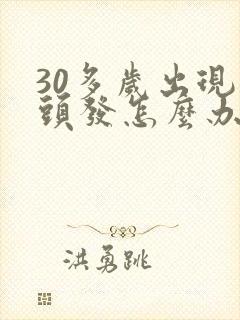 30多歲出現
頭發怎麼办
洪勇跳